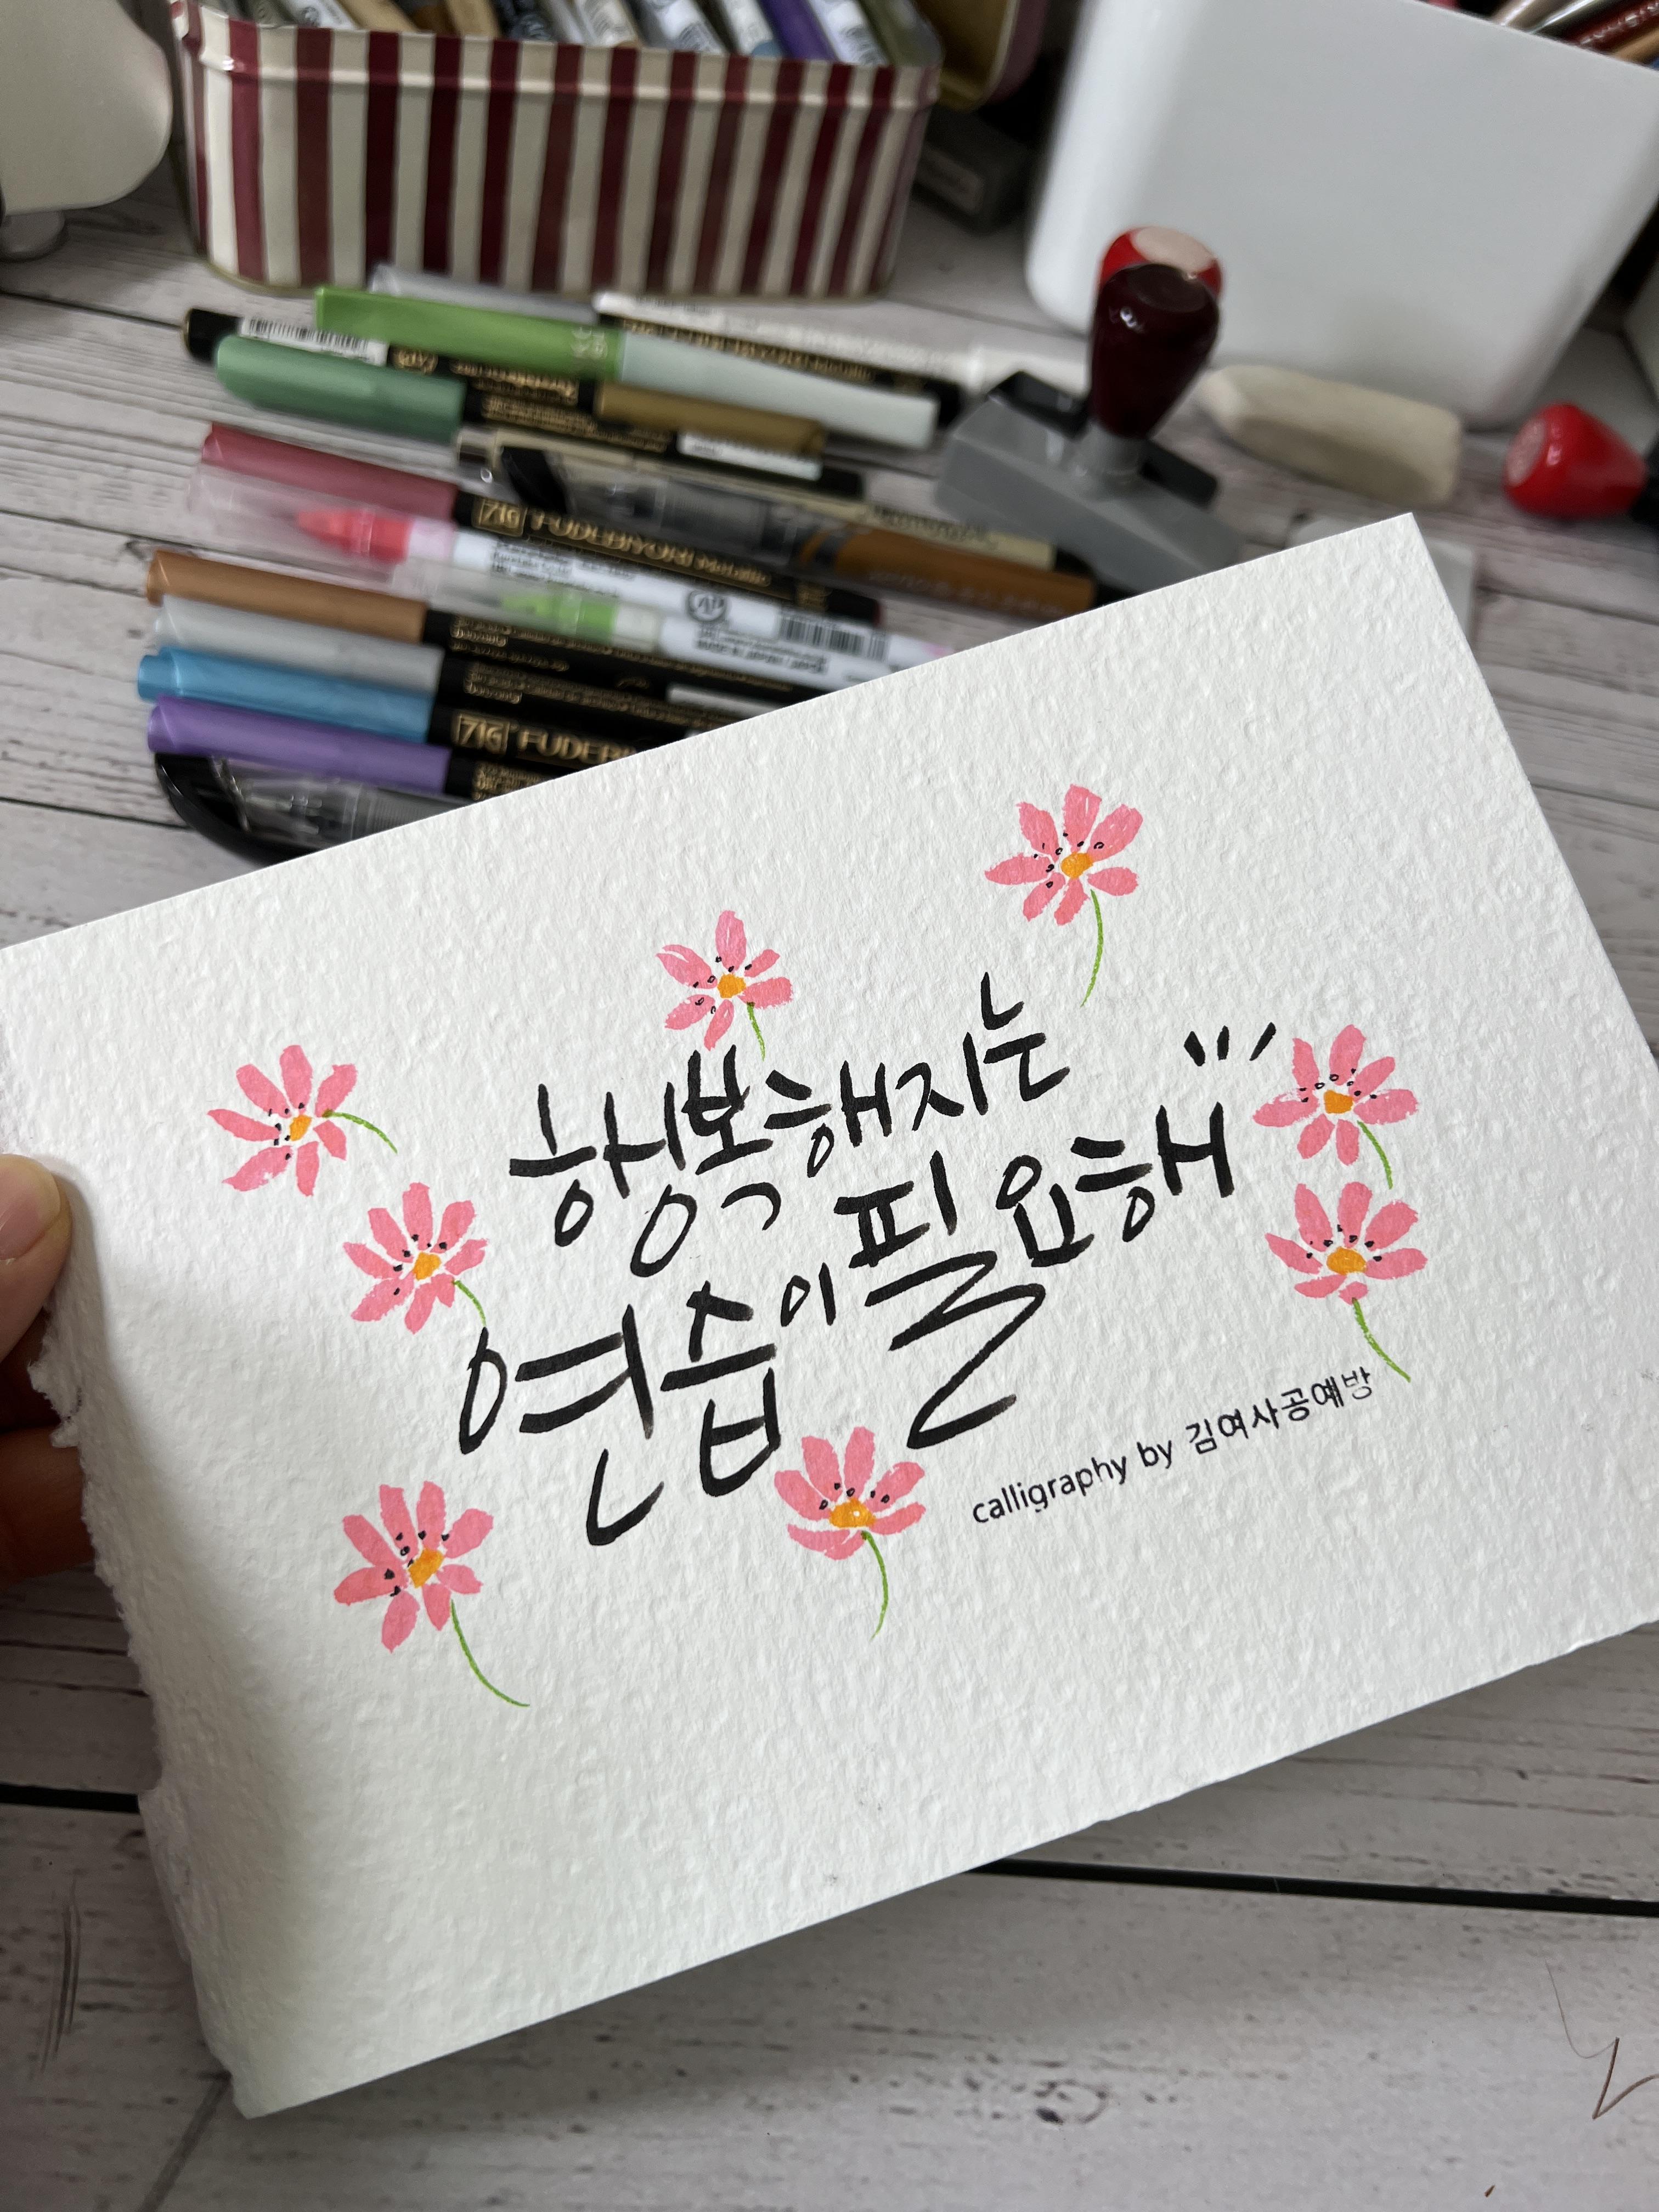 행복해지는
연습이 필요해
calligraphy by 김여사공예방
ZIG FUDEBIYORI Metallic
ZIG
MADE IN JAPAN